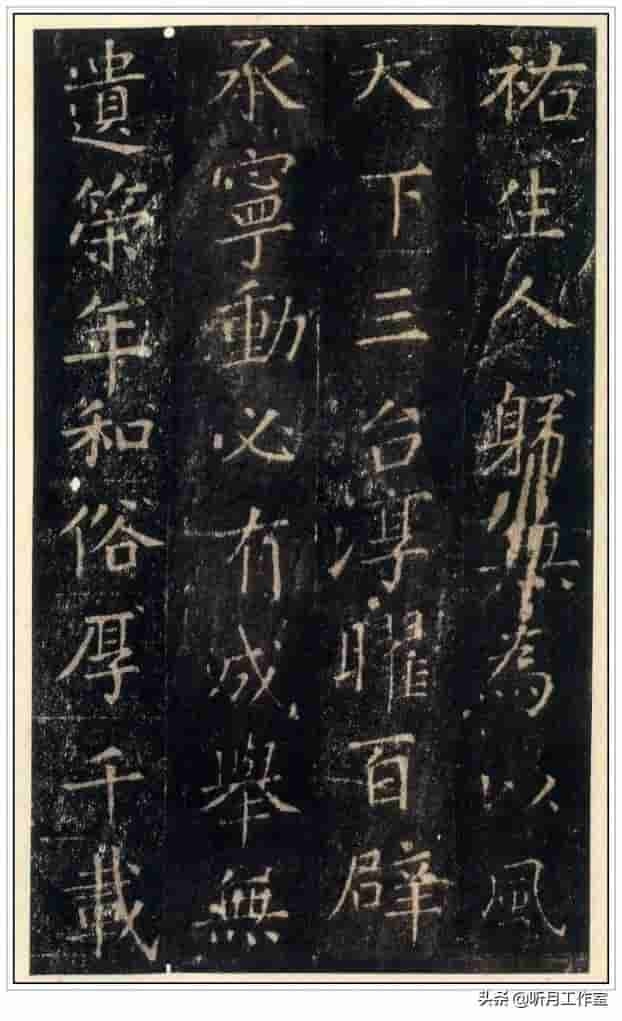 祐人躬無為以風
天下三台淳曜百辟
承寧動必有成舉無
遺策年和俗厚千載
头条 @听月工作室